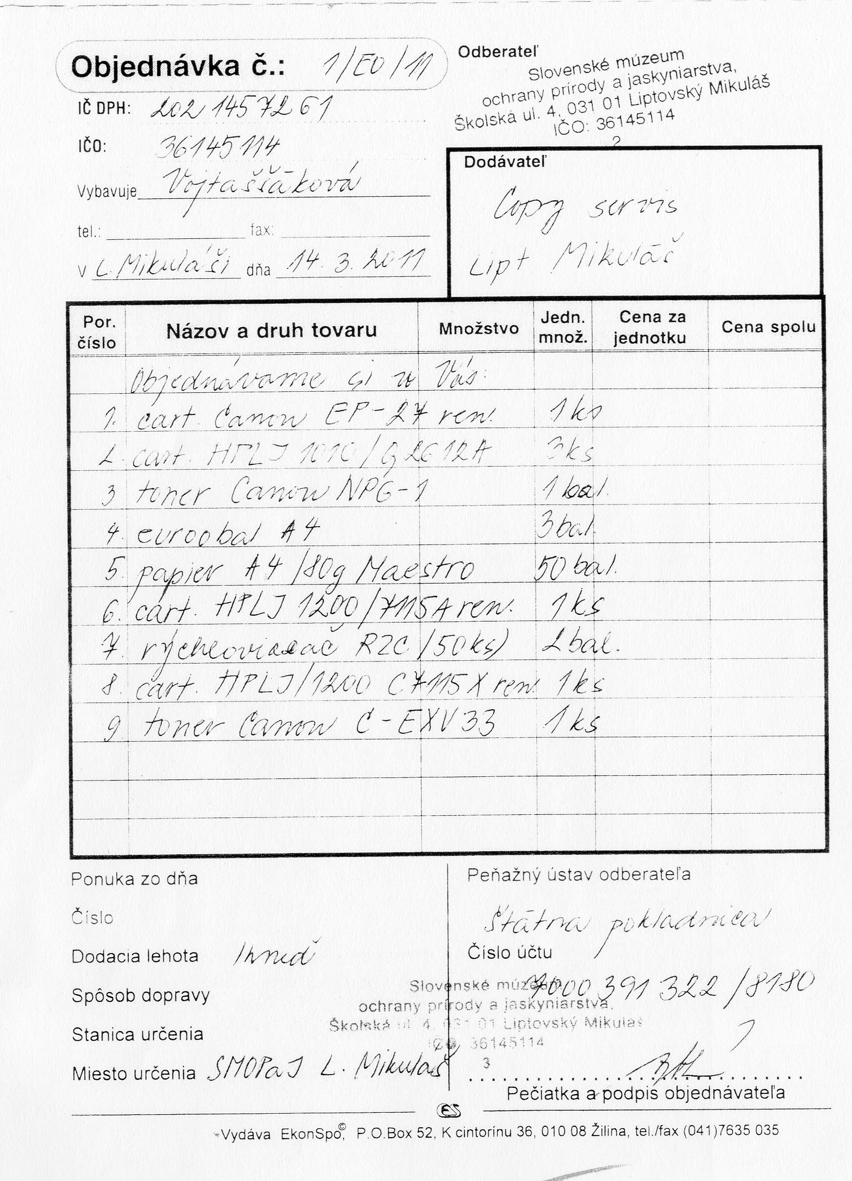 Objednávka č.: 1/EO/11
IČ DPH: 202 14572 61
IČO: 36145114
Vybavuje Vojtaššáková
tel.: fax:
V L. Mikuláši dňa 14. 3. 2011
Odberateľ
Slovenské múzeum
ochrany prírody a jaskyniarstva,
Školská ul. 4, 031 01 Liptovský Mikuláš
IČO: 36145114
2
Dodávateľ
Copy servis
Lipt Mikuláš
Por. číslo Názov a druh tovaru Množstvo Jedn. množ. Cena za jednotku Cena spolu
Objednávame si u Vás:
1. cart. Canon EP-27 ren. 1 ks
2. cart. HPLJ 1010/Q2612A 3 ks
3 toner Canon NPG-1 1 bal.
4. euroobal A4 3 bal.
5. papier A4/80g Maestro 50 bal.
6. cart. HPLJ 1200/7115A ren. 1 ks
7. rýchloviazač RZC/50ks) 2 bal.
8. cart. HPLJ/1200 C7115X ren. 1 ks
9 toner Canon C-EXV33 1 ks
Ponuka zo dňa
Číslo
Dodacia lehota Ihneď
Spôsob dopravy
Stanica určenia
Miesto určenia SMOPaJ L. Mikuláš
Peňažný ústav odberateľa
Štátna pokladnica
Číslo účtu
7000 391 322 /8180
Slovenské múzeum
ochrany prírody a jaskyniarstva,
Školská ul. 4, 031 01 Liptovský Mikuláš
IČO: 36145114
3
Pečiatka a podpis objednávateľa
ES
Vydáva EkonSpo©, P.O.Box 52, K cintorínu 36, 010 08 Žilina, tel./fax (041)7635 035